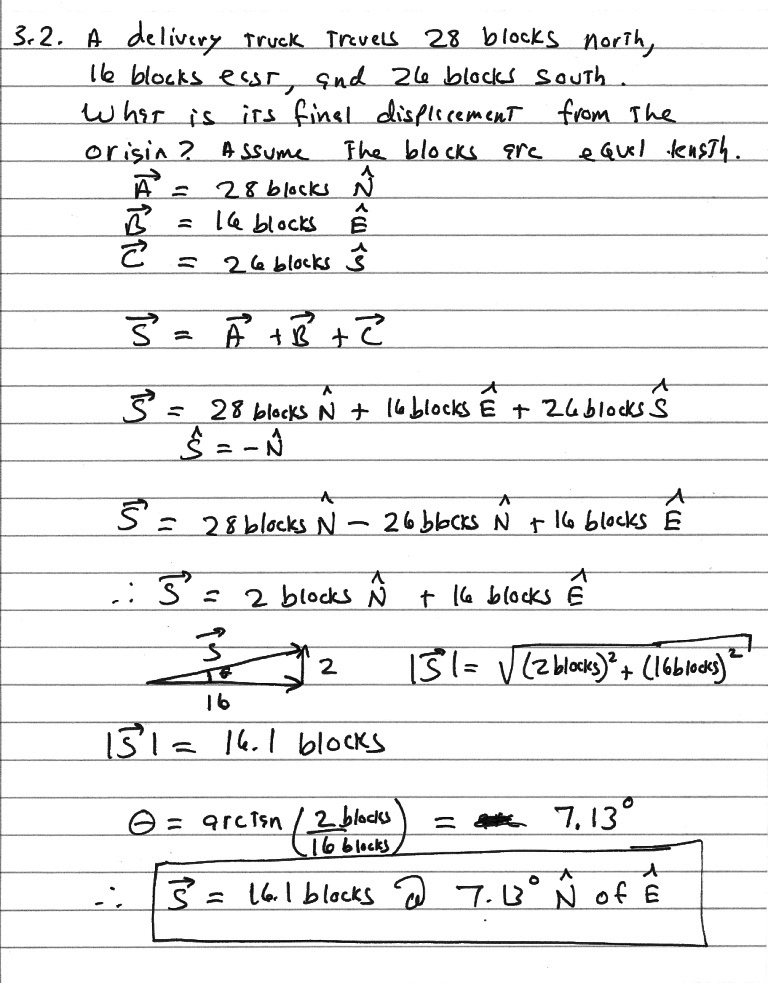 3.2. A delivery truck travels 28 blocks north,
16 blocks east, and 26 blocks south.
What is its final displacement from the
origin? Assume the blocks are equal length.
A⃗ = 28 blocks N̂
B⃗ = 16 blocks Ê
C⃗ = 26 blocks Ŝ
S⃗ = A⃗ + B⃗ + C⃗
S⃗ = 28 blocks N̂ + 16 blocks Ê + 26 blocks Ŝ
Ŝ = -N̂
S⃗ = 28 blocks N̂ - 26 blocks N̂ + 16 blocks Ê
∴ S⃗ = 2 blocks N̂ + 16 blocks Ê
S⃗ θ 2 16 |S⃗| = √((2 blocks)² + (16 blocks)²)
|S⃗| = 16.1 blocks
θ = arctan (2 blocks / 16 blocks) = 7.13°
∴ S⃗ = 16.1 blocks @ 7.13° N̂ of Ê